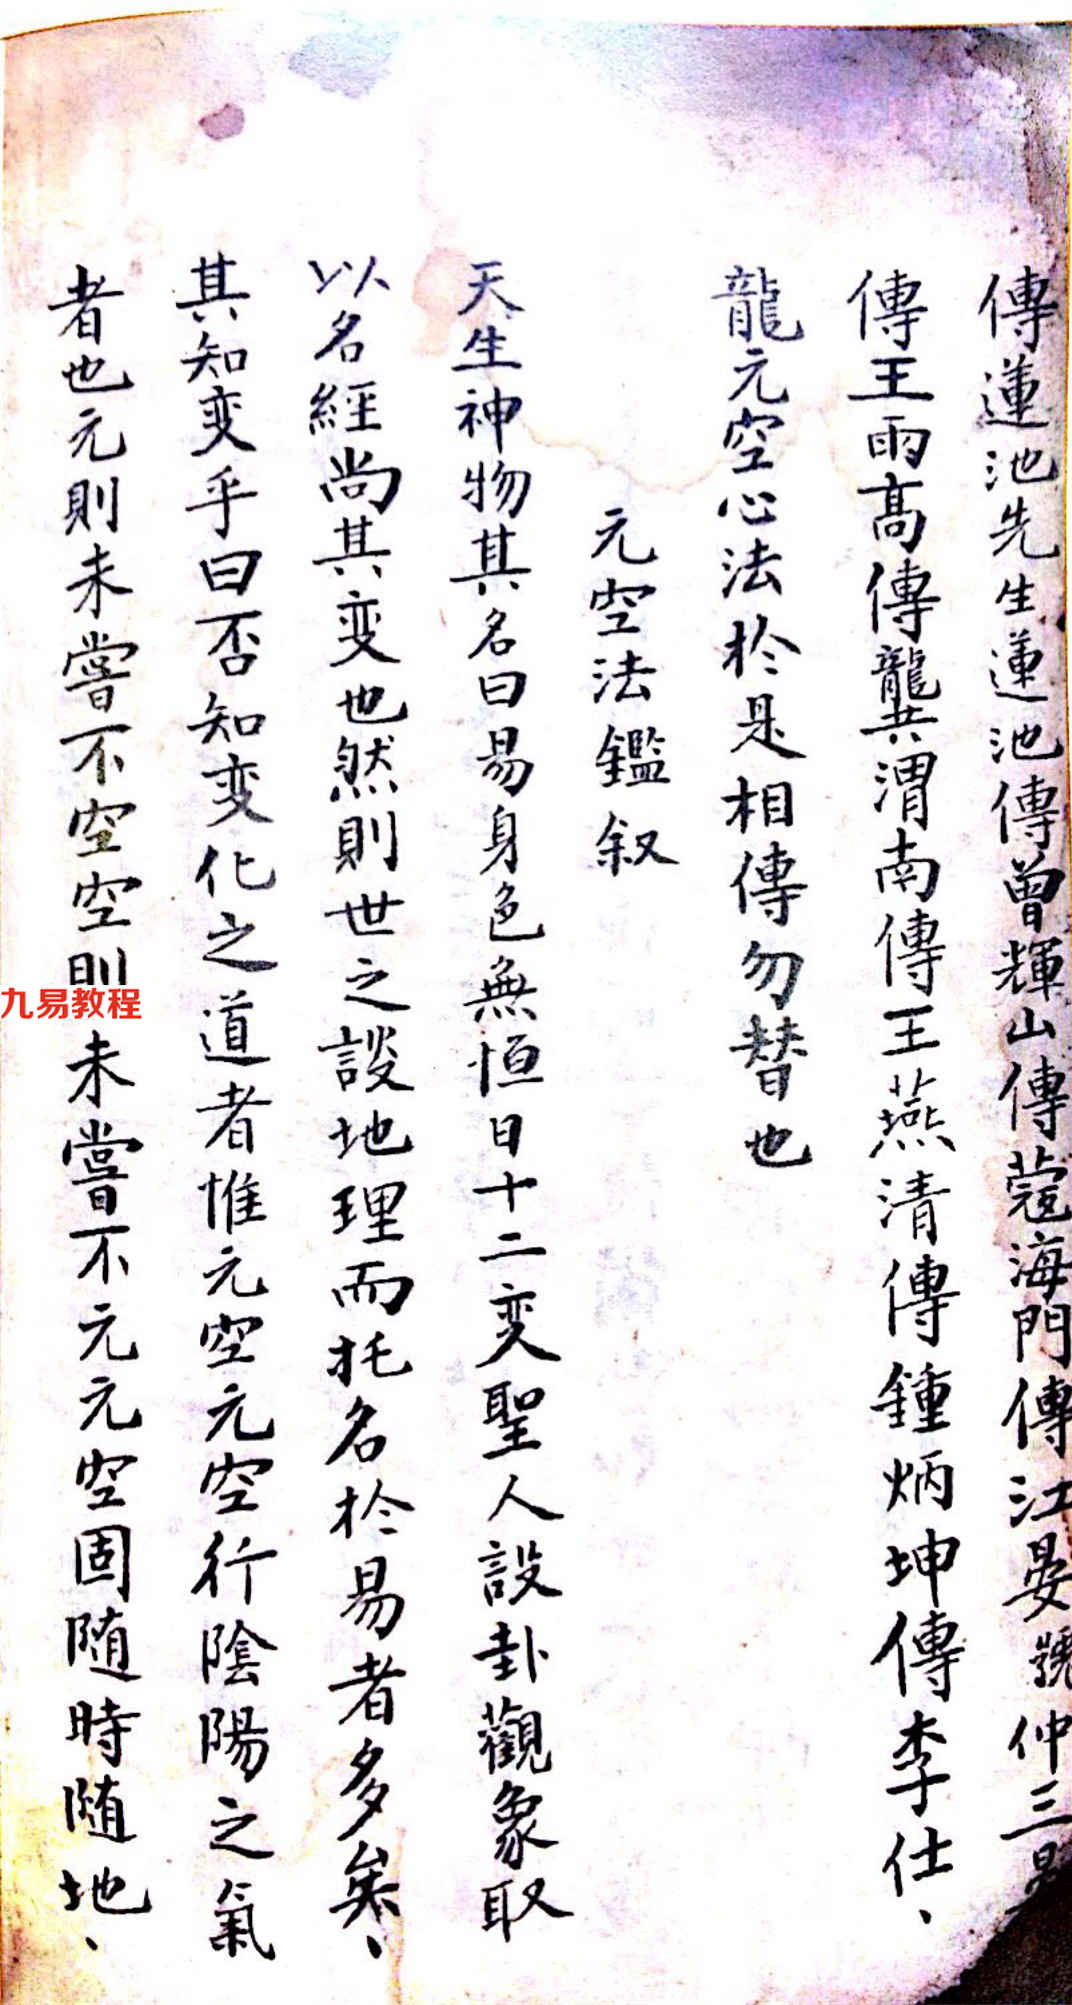 傳蓮池先生蓮池傳曾輝山傳蔻海門傳江晏號仲三
傳王雨髙傳龔渭南傳王燕清傳鍾炳坤傳李仕、
龍元空心法於是相傳勿替也
元空法鑑叙
天生神物其名曰易身色無恒日十二变聖人設卦觀象取
以名經尚其变也然則世之談地理而托名於易者多矣、
其知变乎曰否知变化之道者惟元空元空行陰陽之氣
者也元則未嘗不空空則未嘗不元元空固随時随地、
九易教程